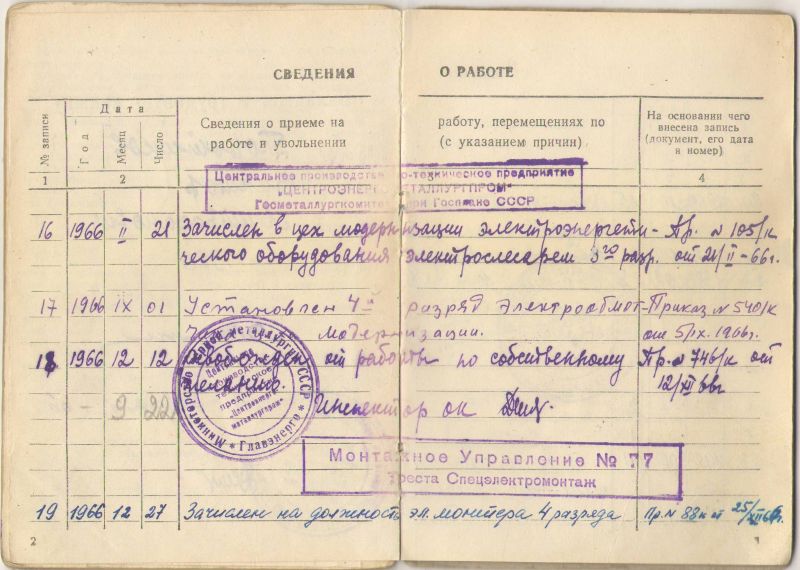 СВЕДЕНИЯ О РАБОТЕ
№ записи
Дата
Год
Месяц
Число
Сведения о приеме на работу, перемещениях по
работе и увольнении (с указанием причин)
На основании чего
внесена запись
(документ, его дата
и номер)
1 2 3 4
Центральное производственно-техническое предприятие
"ЦЕНТРОЭНЕРГОМЕТАЛЛУРГПРОМ"
Госметаллургкомитета при Госплане СССР
16 1966 II 21 Зачислен в цех модернизации электроэнергети- Пр. № 105/к
ческого оборудования электрослесарем 3го разр. от 21/II-66г.
17 1966 IX 01 Установлен 4й разряд электрообмот- Приказ № 540/к
модернизации. от 5/IX. 1966г.
18 1966 12 12 от работы по собственному Пр. № 746/к от
желанию. 12/XII 66г
Инспектор ОК
Министерство черной металлургии СССР
Главэнерго
"Центроэнерго
металлургпром"
Монтажное Управление № 77
Треста Спецэлектромонтаж
19 1966 12 27 Зачислен на должность эл. монтёра 4 разряда Пр. № 88к от 25/XII 66г.
2